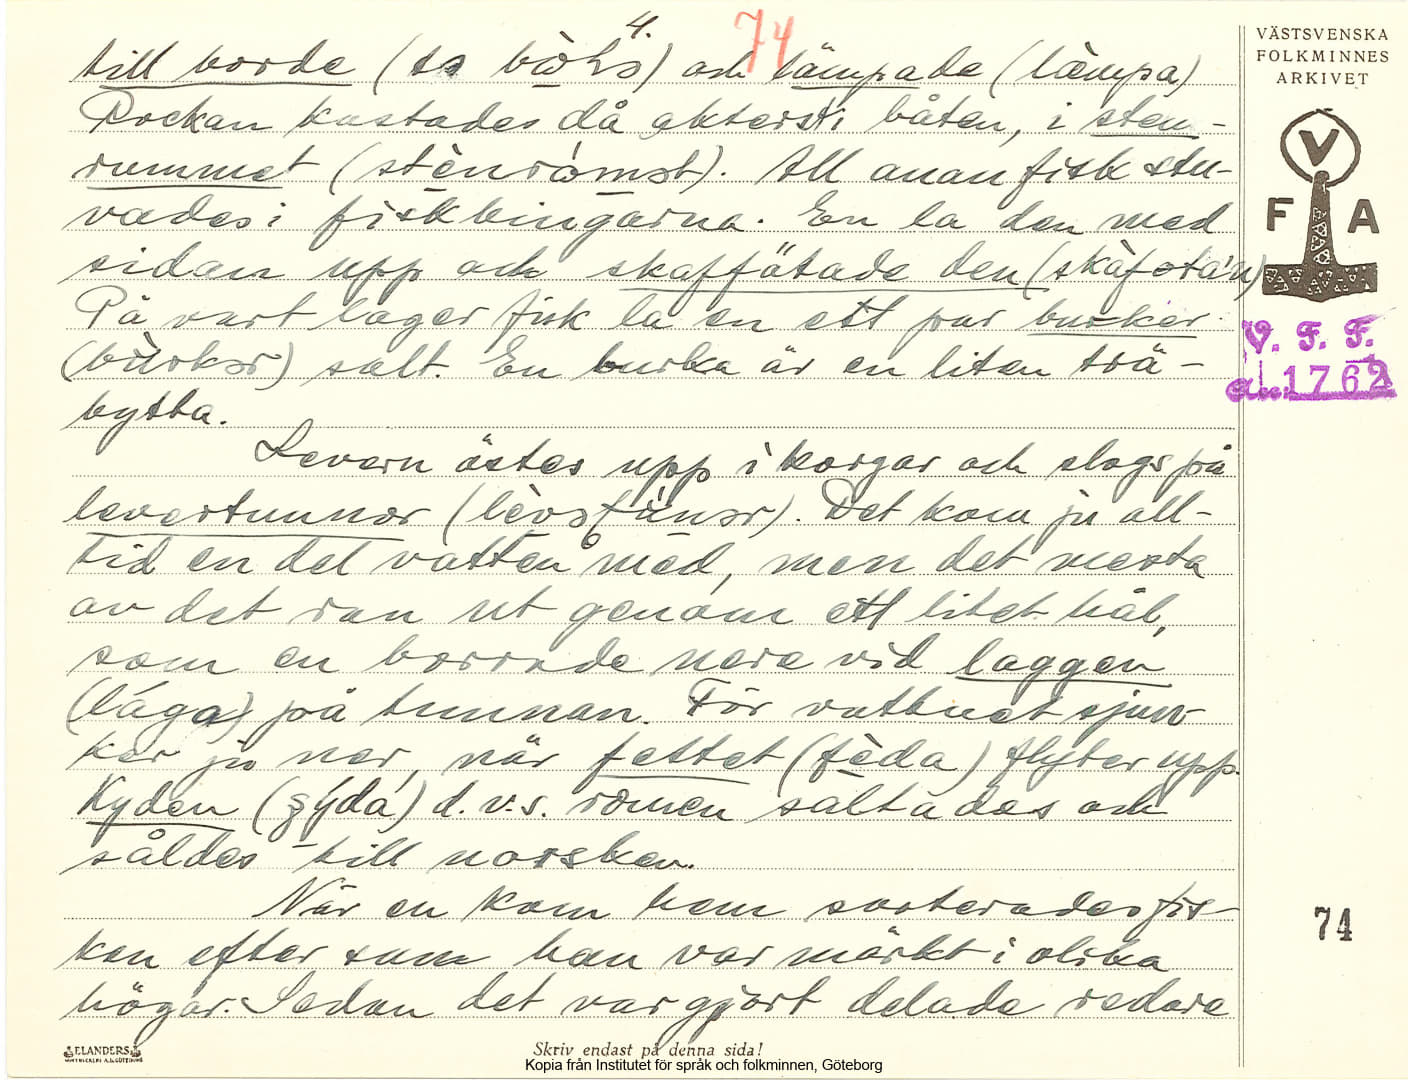 4.
74
VÄSTSVENSKA
FOLKMINNES
ARKIVET
V
F A
V. F. F.
an: 1762
till borde (ta bòls) och lämpade (læ̀mpa)
Rockan kastades då akterst i båten, i sten-
rummet (stènrómət). All anan fisk stu-
vades i fiskbingarna. En la den med
sidan upp och skaffötade den (skàfotán)
På vart lager fisk la en ett par burker
(bùrkər) salt. En burka är en liten trä-
bytta.
Levern östes upp i korgar och slogs på
levertunnor (lèvətúnər). Det kom ju all-
tid en del vatten med, men det mesta
av det ran ut genom ett litet hål,
som en borrade nere vid laggen
(lága) på tunnan. För vattnet sjun-
ker ju ner, när fettet (fèda) flyter upp.
Kyden (ȿýda) d. v. s. romen saltades och
såldes till norsken.
När en kom hem sorterades fis-
ken efter som han var märkt i olika
högar. Sedan det var gjort delade redare
74
ELANDERS
Skriv endast på denna sida!
Kopia från Institutet för språk och folkminnen, Göteborg